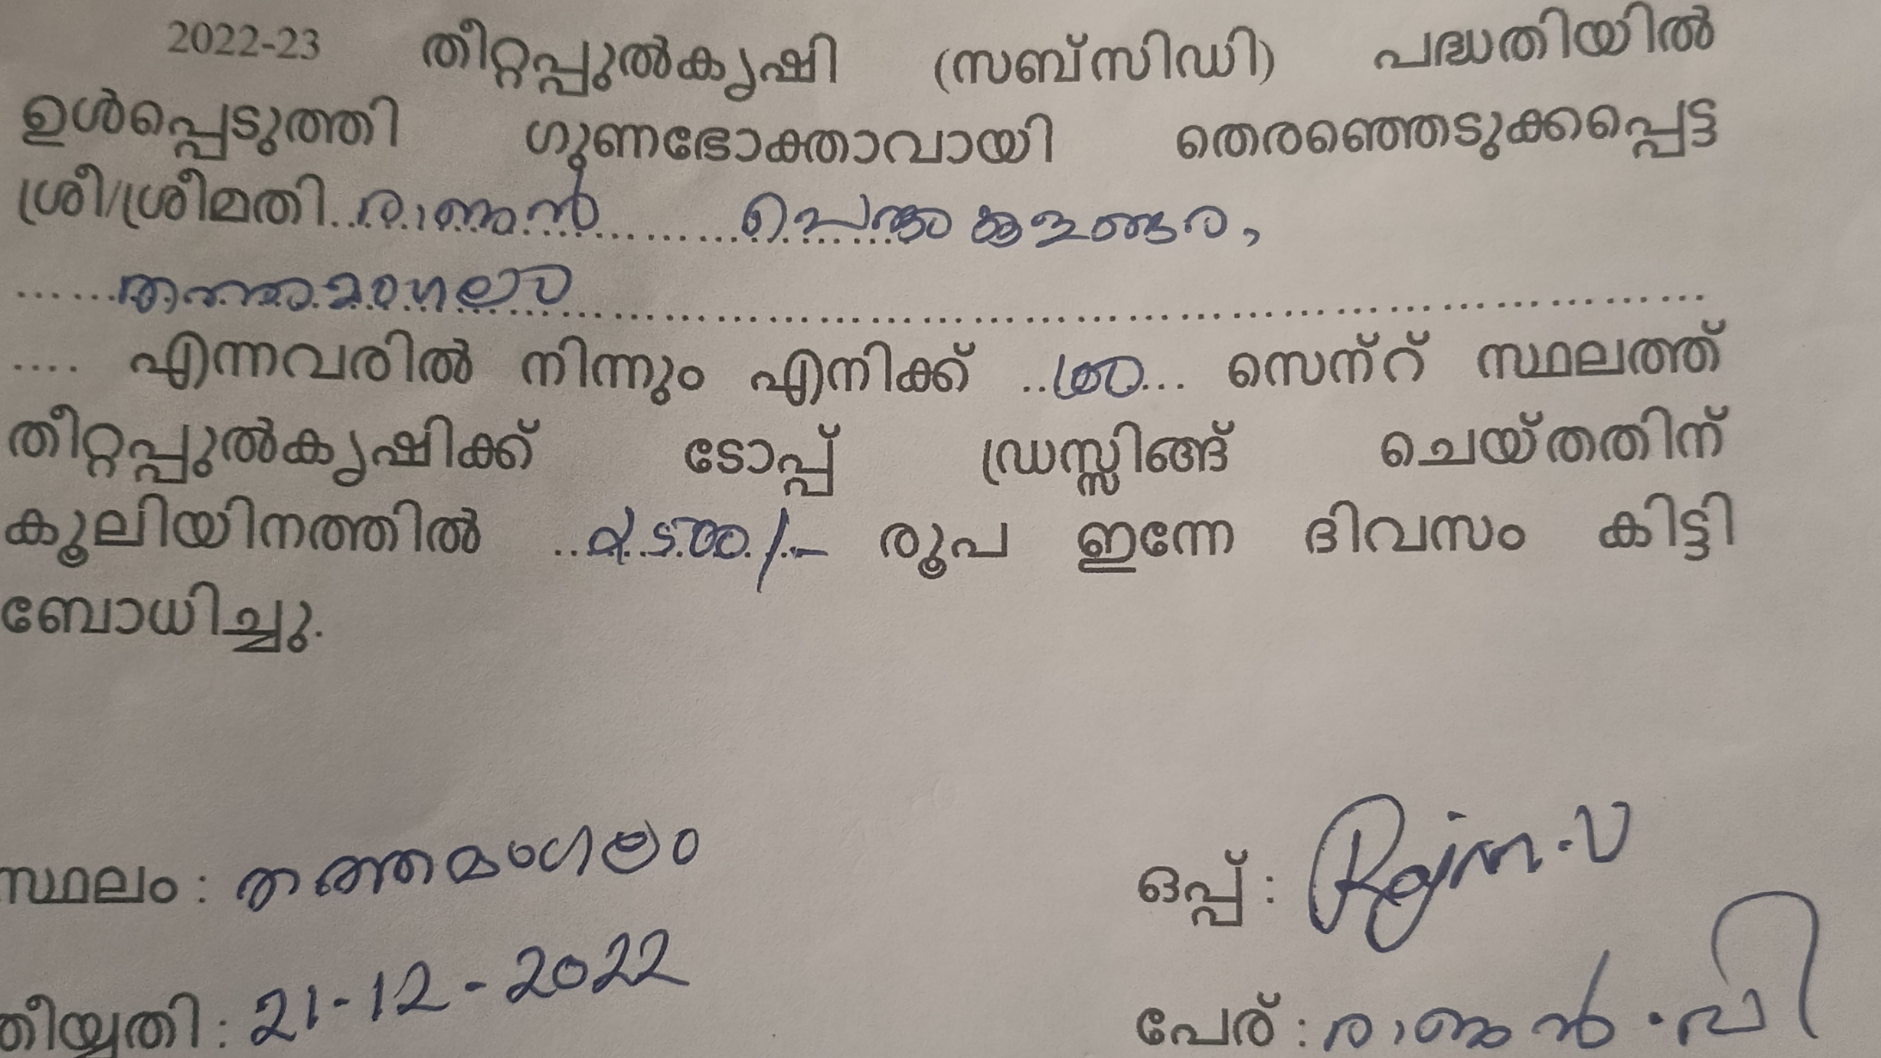 2022-23 തീറ്റപ്പുൽകൃഷി (സബ്സിഡി) പദ്ധതിയിൽ
ഉൾപ്പെടുത്തി ഗുണഭോക്താവായി തെരഞ്ഞെടുക്കപ്പെട്ട
ശ്രീ/ശ്രീമതി..രാജൻ
......തത്തമംഗലം......
.... എന്നവരിൽ നിന്നും എനിക്ക് സെന്റ് സ്ഥലത്ത്
തീറ്റപ്പുൽകൃഷിക്ക് ടോപ്പ് ഡ്രസ്സിങ്ങ് ചെയ്തതിന്
കൂലിയിനത്തിൽ രൂപ ഇന്നേ ദിവസം കിട്ടി
ബോധിച്ചു.
സ്ഥലം : തത്തമംഗലം
ഒപ്പ് : Rajan.V
തീയ്യതി : 21-12-2022
പേര് : രാജൻ.വി